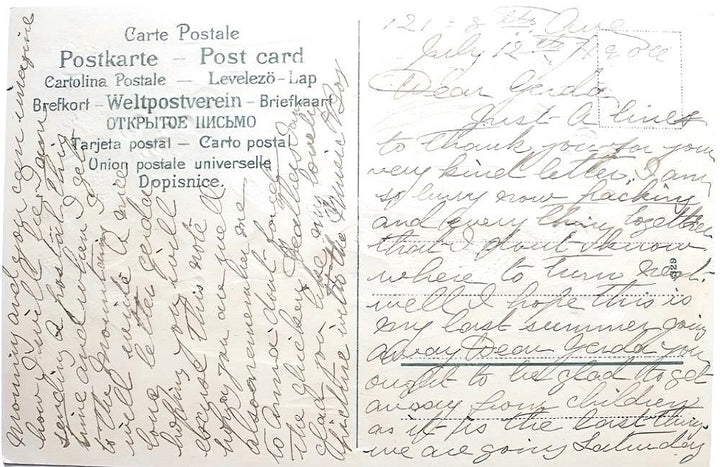 Carte Postale
Postkarte – Post card
Cartolina Postale – Levelezö-Lap
Brefkort – Weltpostverein – Briefkaart
ОТКРЫТОЕ ПИСЬМО
Tarjeta postal – Carto postal
Union postale universelle
Dopisnice.
121 - 8th Ave
July 12th
Dear Gerda
Just a lines
to thank you for your
very kind letter, I am
so bury now packing
and every thing together
that I dont know
where to turn next.
well I hope this is
my last summer going
away Dear Gerda you
ought to be glad to get
away from children
as it is the last thing
we are going Saturday
morning and you can imagine
how I will
sending a postal this
time and when I get
to the mountains
will write a nice
long letter Gerda
hoping you will
excuse this note
hoping you are
also remember me
to Anna dont forget
the chickens
glad you are
with the music Box
329